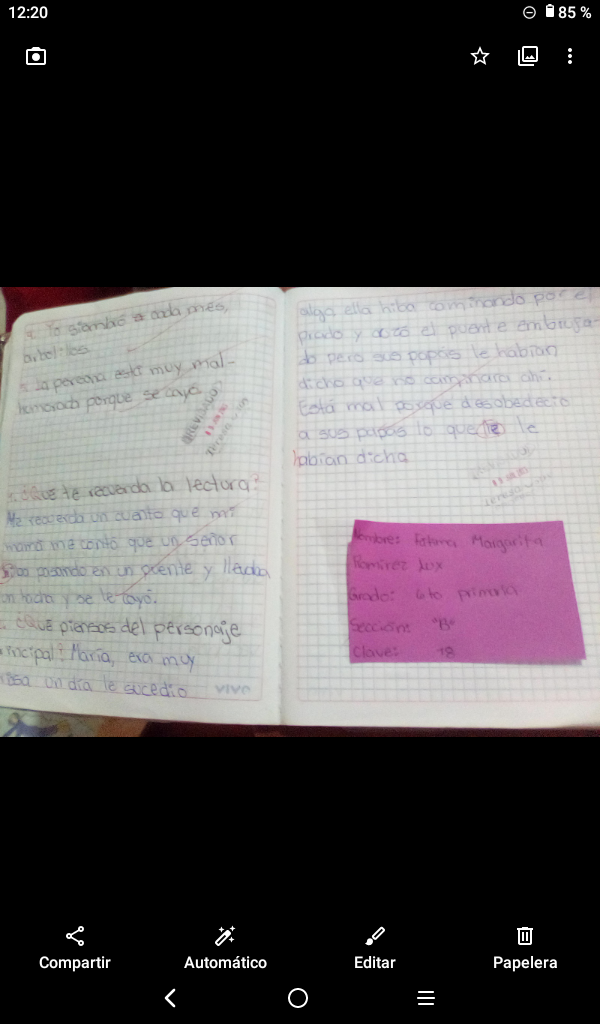 12:20
85 %
4. Yo siambré a cada mes,
arbolitos
la persona está muy mal-
humorada porque se cayó.
¿Que te recuerda la lectura?
Me recuerda un cuento que mi
mamá me contó que un señor
iba pasando en un puente y llevaba
un hacha y se le cayó.
¿QUE piensas del personaje
principal? María, era muy
un día le sucedio
vivo
algo ella hiba caminando por el
prado y cruzó el puente embruja-
do pero sus papas le habían
dicho que no caminara ahí.
Está mal porque desobedecio
a sus papas lo que le
habian dicho
Nombre: Fatima Margarita
Ramirez
Grado: 6to primaria
Sección: "B"
Clave: 18
Compartir
Automático
Editar
Papelera